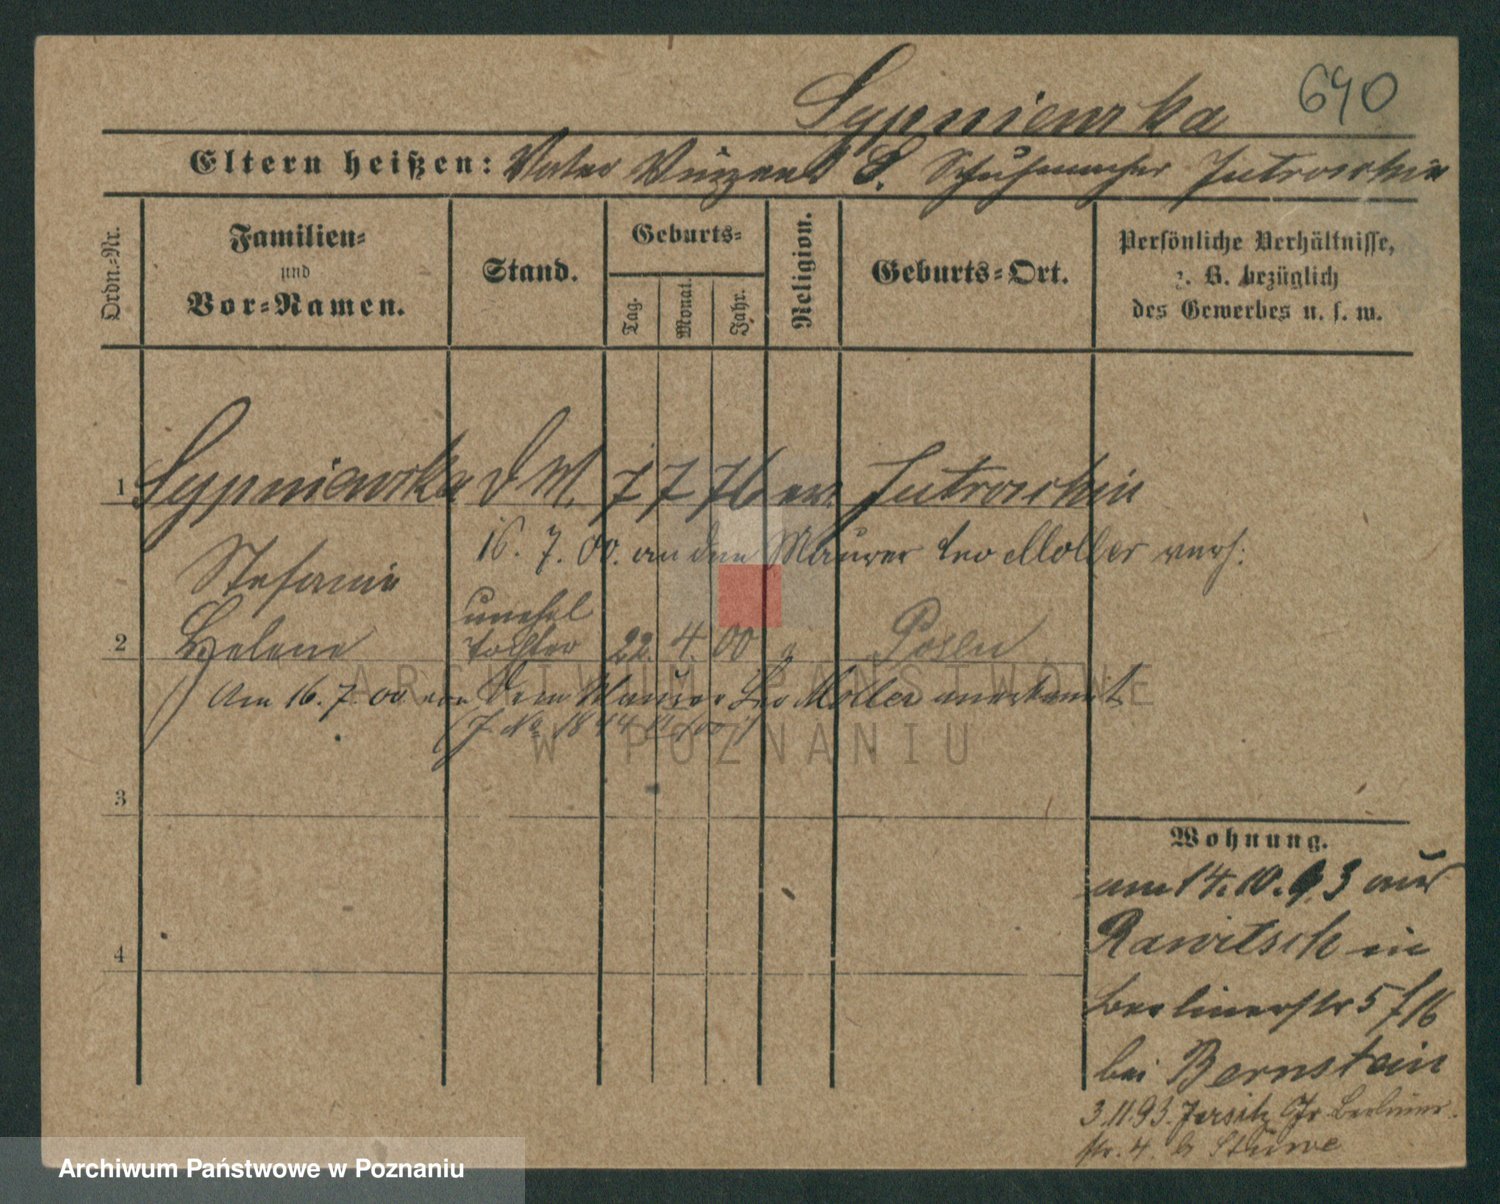 640
Sypniewska
Eltern heißen: Vater Vinzent S. Schuhmacher Jutroschin
Ordn.-Nr.
Familien-
und
Vor-Namen.
Stand.
Geburts-
Tag.
Monat.
Jahr.
Religion.
Geburts-Ort.
Persönliche Verhältnisse,
z. B. bezüglich
des Gewerbes u. s. w.
1 Sypniewska D M. 7 7 76 Jutroschin
16. 7. 00. an den Maurer Leo Moller verh:
Stefanie
unehel
2 Helene Tochter 22. 4. 00 Posen
Am 16. 7. 00 von dem Maurer Leo Moller anerkannt
(J. No 1844
3
4
Wohnung.
am 14. 10. 93 aus
Rawitsch in
Berlinerstr 5
bei Bernstein
3.11.93. Jersitz Gr Berliner-
str. 4. b Stüwe
ARCHIWUM PAŃSTWOWE
W POZNANIU
Archiwum Państwowe w Poznaniu